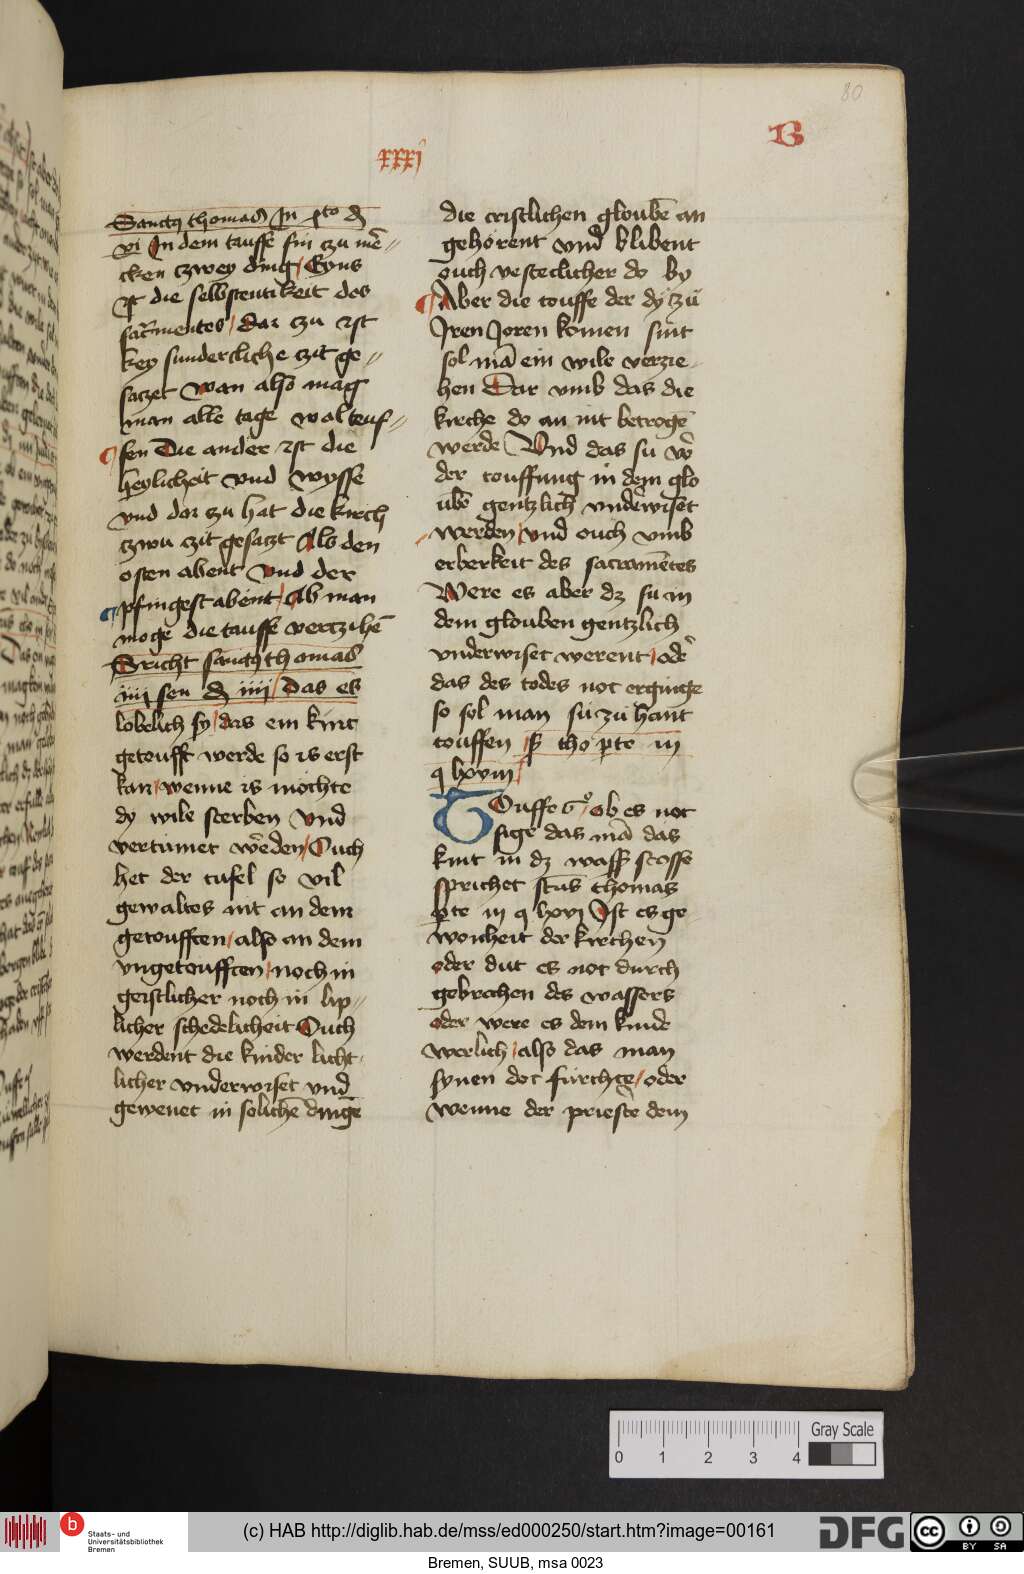 80
B
xxxj
Sanctus thomas In
vi In dem tauffe sin czu mē〃
cken czwey ding / Eyns
ist die selbstentikeit des
sacͬmentes / Dar czu ist
key sundercliche czit ge〃
saczet wan also mag
man alle tage wal teuf〃
¶ sen Die ander ist die
heylicheit vnd wysse
vnd dar zu hat die kirch
czwu zit gesatzt Als den
osten abent vnd der
¶ pfingest abent / Ab man
moge die tauffe vertzihē
Spricht sanctus thomas
iiij sen iiij / Das es
lobelich sy / das ein kint
geteufft werde so is erst
kan / wenne is mochte
dy wile sterben vnd
vertumet wēden / Ouch
het der tufel so vil
gewaltes nit an dem
getoufften / also an dem
vngetoufften / noch in
geistlicher noch in lip〃
licher schedelicheit Ouch
werdent die kinder licht
licher vnderwiset vnd
gewenet in solichē dinge
die cristlichen gloubē an
gehorent vnd blibent
ouch vesteclicher do by
¶ Aber die touffe der dy zů
Iren Joren komen sint
sol mā ein wile verzie
hen Dar vmb das die
kirche do an nit betrogē
werde Vnd das su
der touffung in dem glo
ubē gentzlich vnderwiset
werden / vnd ouch vmb
erberkeit des sacramētes
Were es aber dz su in
dem glouben gentzlich
vnderwiset werent / odͤ
das des todes not erginge
so sol man su zů hant
touffen / tho pte iij
q lxviij /
Touffe 6° ob es not
sige das mā das
kint in dz wasser stosse
sprichet sctūs thomas
pte iij q lxvj Ist es ge
wonheit der kirchen
oder dut es not durch
gebrechen des wassers
oder were es dem kinde
werlich / also das man
synen dot fürchte / oder
wenne der priestē dem
0 1 2 3 4
Gray Scale
b Staats- und
Universitätsbibliothek
Bremen
(c) HAB http://diglib.hab.de/mss/ed000250/start.htm?image=00161
DFG
cc BY SA
Bremen, SUUB, msa 0023